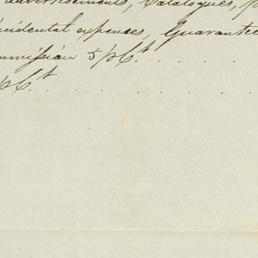 advertisements, Catalogues,
incidental expenses, Guarantee
mmission 5 pCt. . . . .
pCt. . . . . . . .